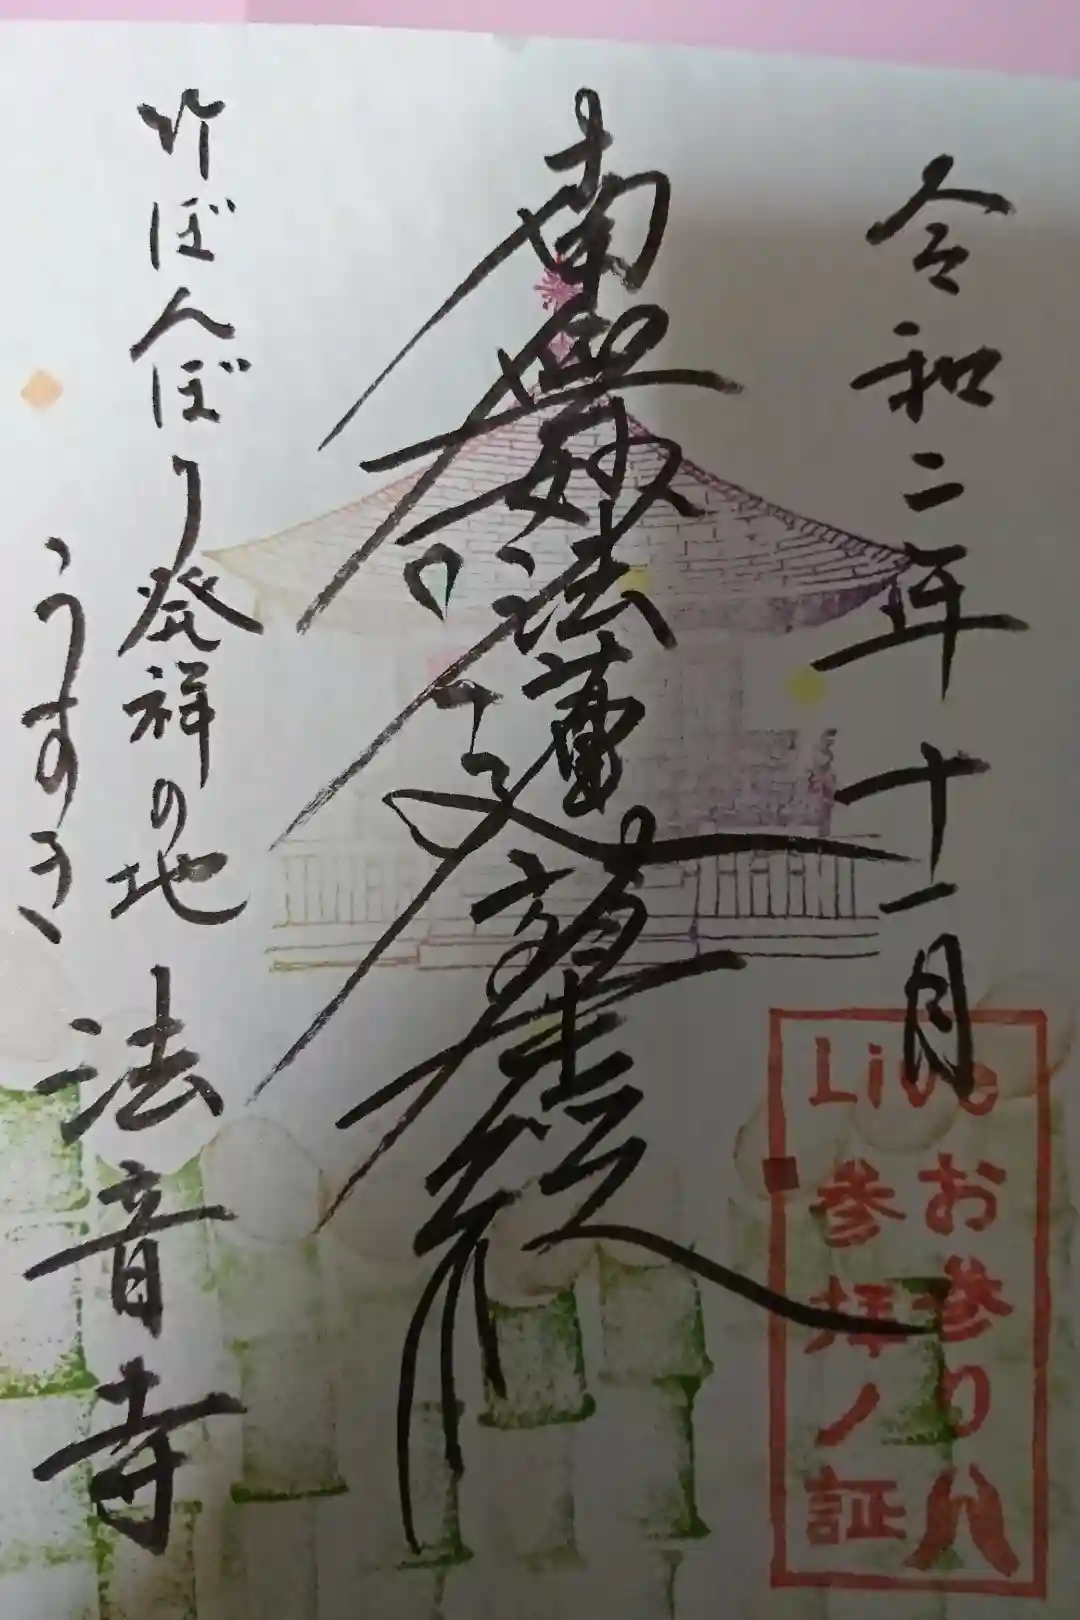 令和二年十一月
南無妙法蓮華経
竹ぼんぼり発祥の地
うすき
法音寺
Live
お参り八
参拝ノ証